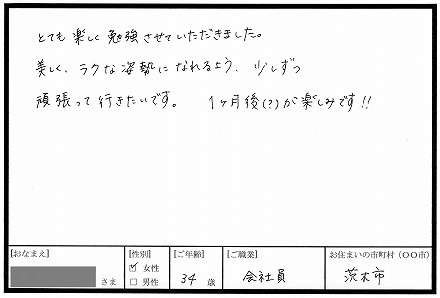 とても楽しく勉強させていただきました。
美しく、ラクな姿勢になれるよう、少しずつ
頑張って行きたいです。 1ヶ月後(?)が楽しみです!!
[おなまえ] さま
[性別] ☑ 女性 □ 男性
[ご年齢] 34 歳
[ご職業] 会社員
お住まいの市町村(〇〇市) 茨木市